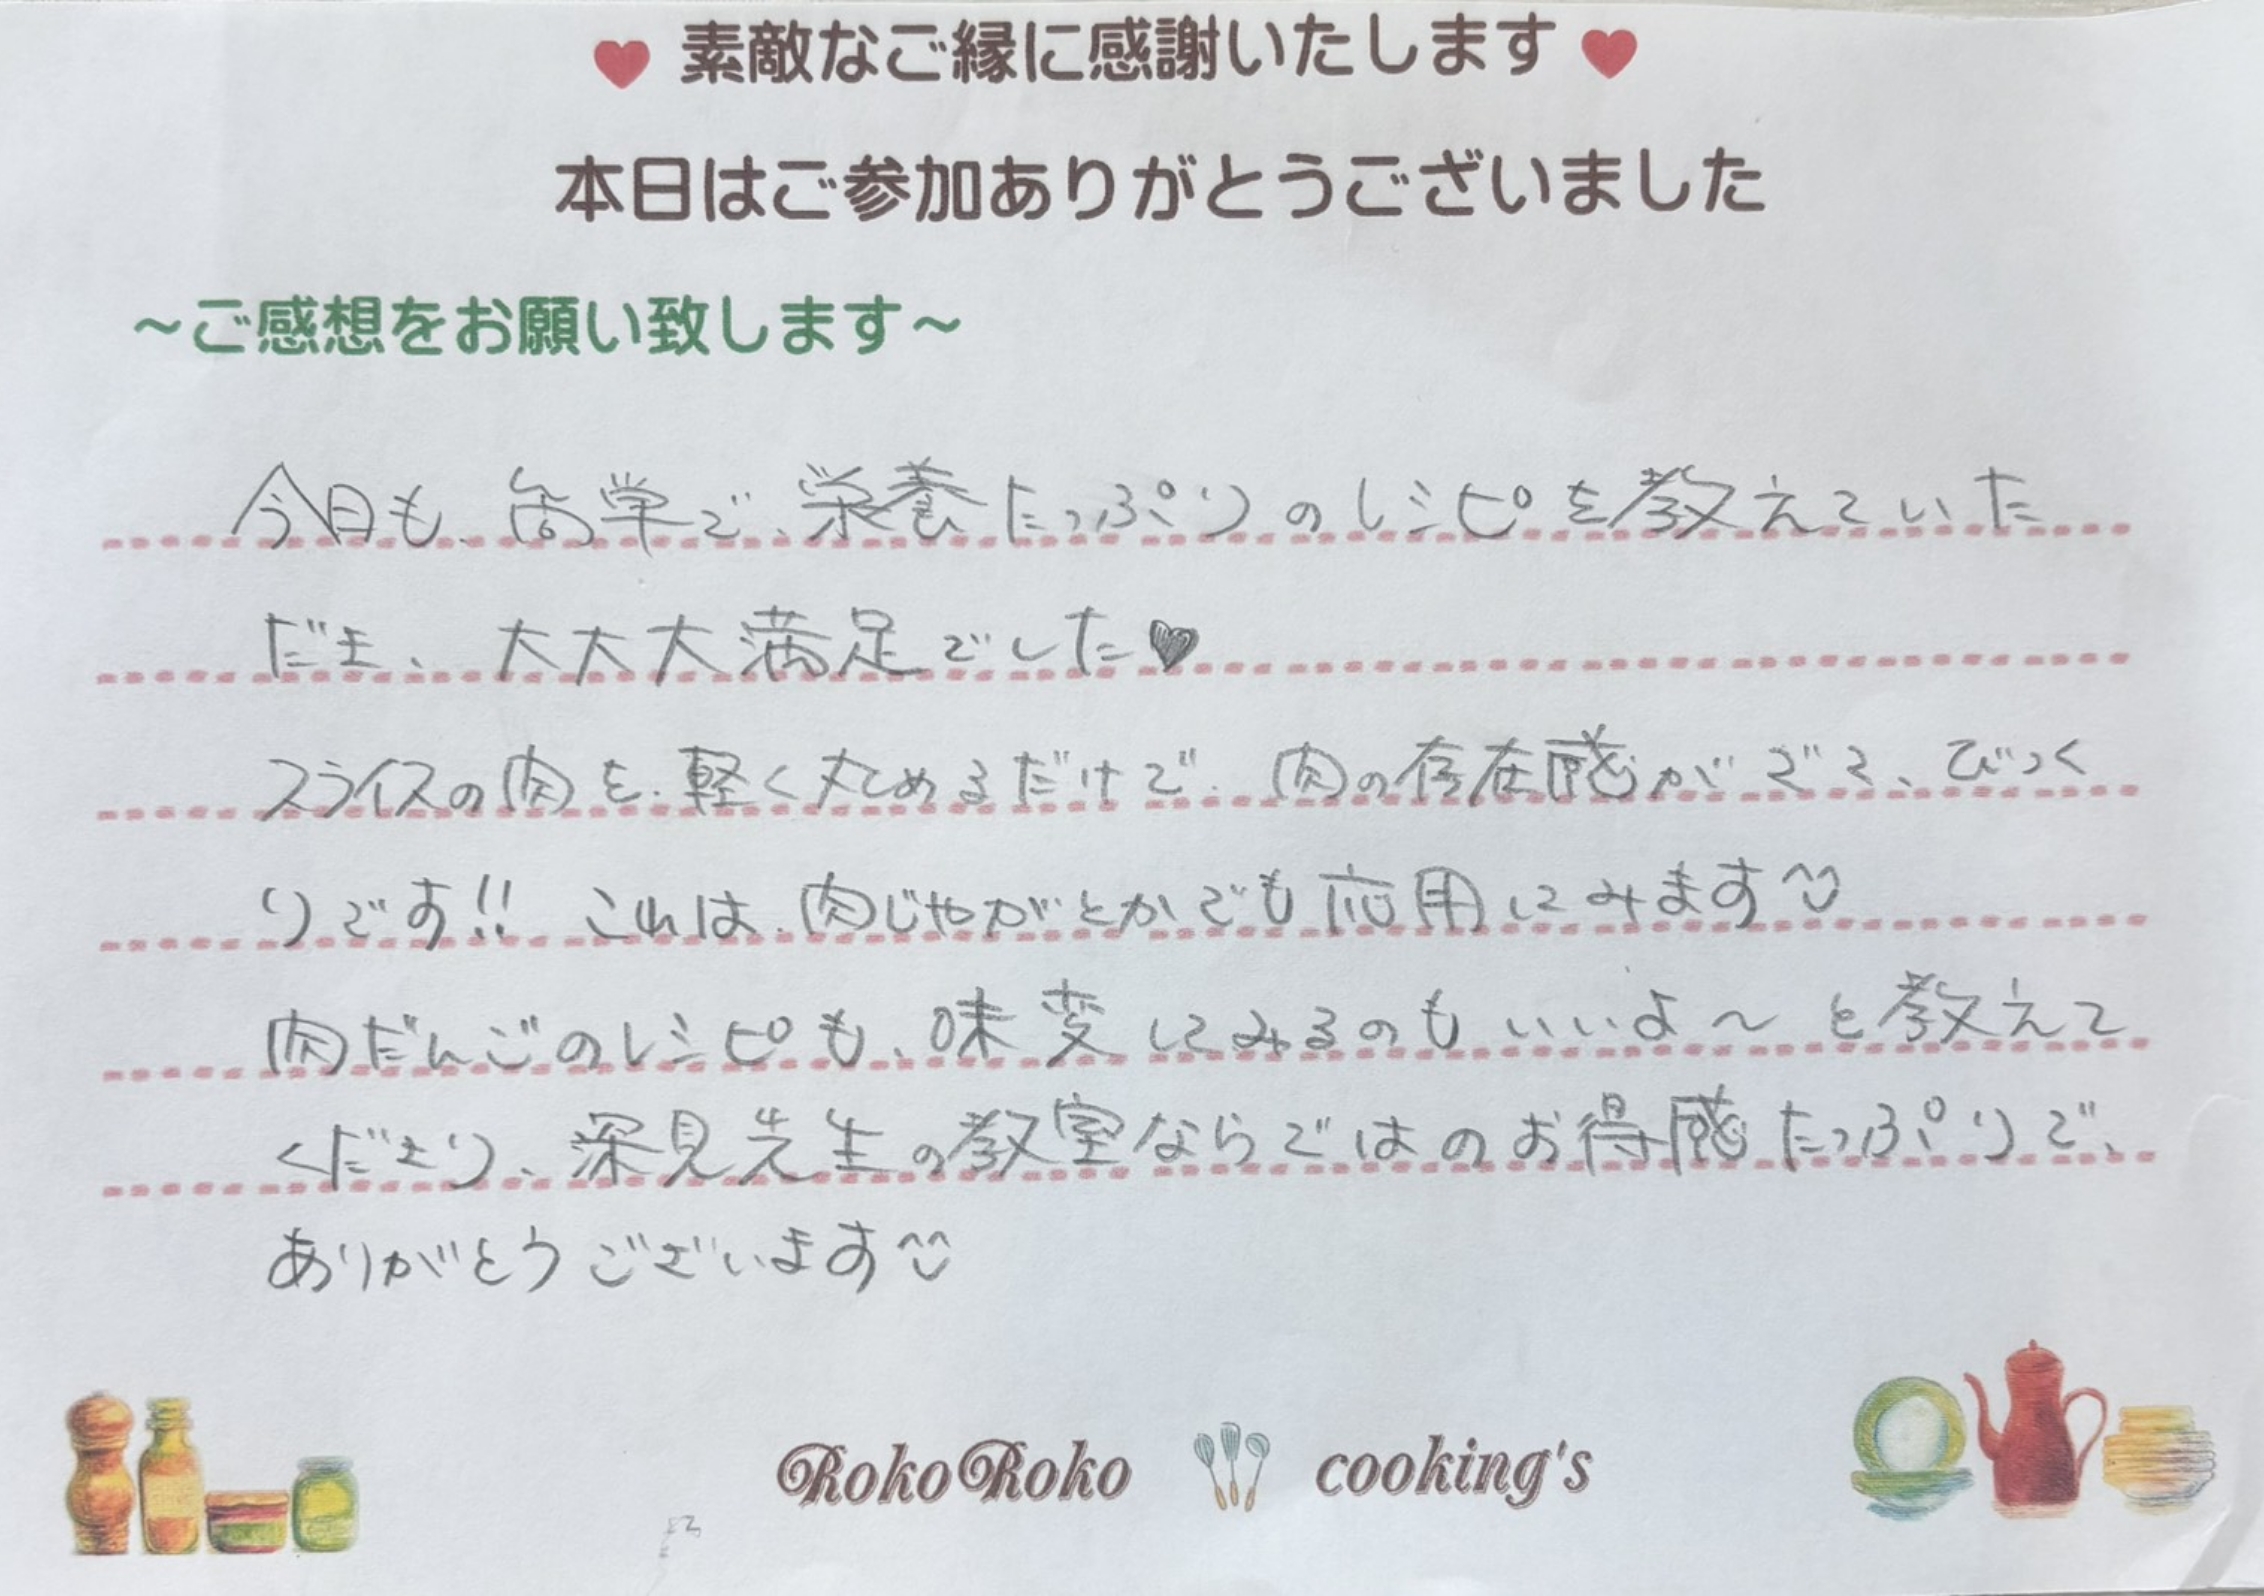 ♥ 素敵なご縁に感謝いたします ♥
本日はご参加ありがとうございました
~ご感想をお願い致します~
今日も、缶学で、栄養たっぷりのレシピを教えていた
だき、大大大満足でした♥
スライスの肉を、軽く丸めるだけで、肉の存在感がでて、びっく
りです!! これは、肉じゃがとかでも応用してみます^^
肉だんごのレシピも、味変してみるのもいいよ～と教えて
くださり、深見先生の教室ならではのお得感たっぷりで、
ありがとうございます^^
RokoRoko cooking's